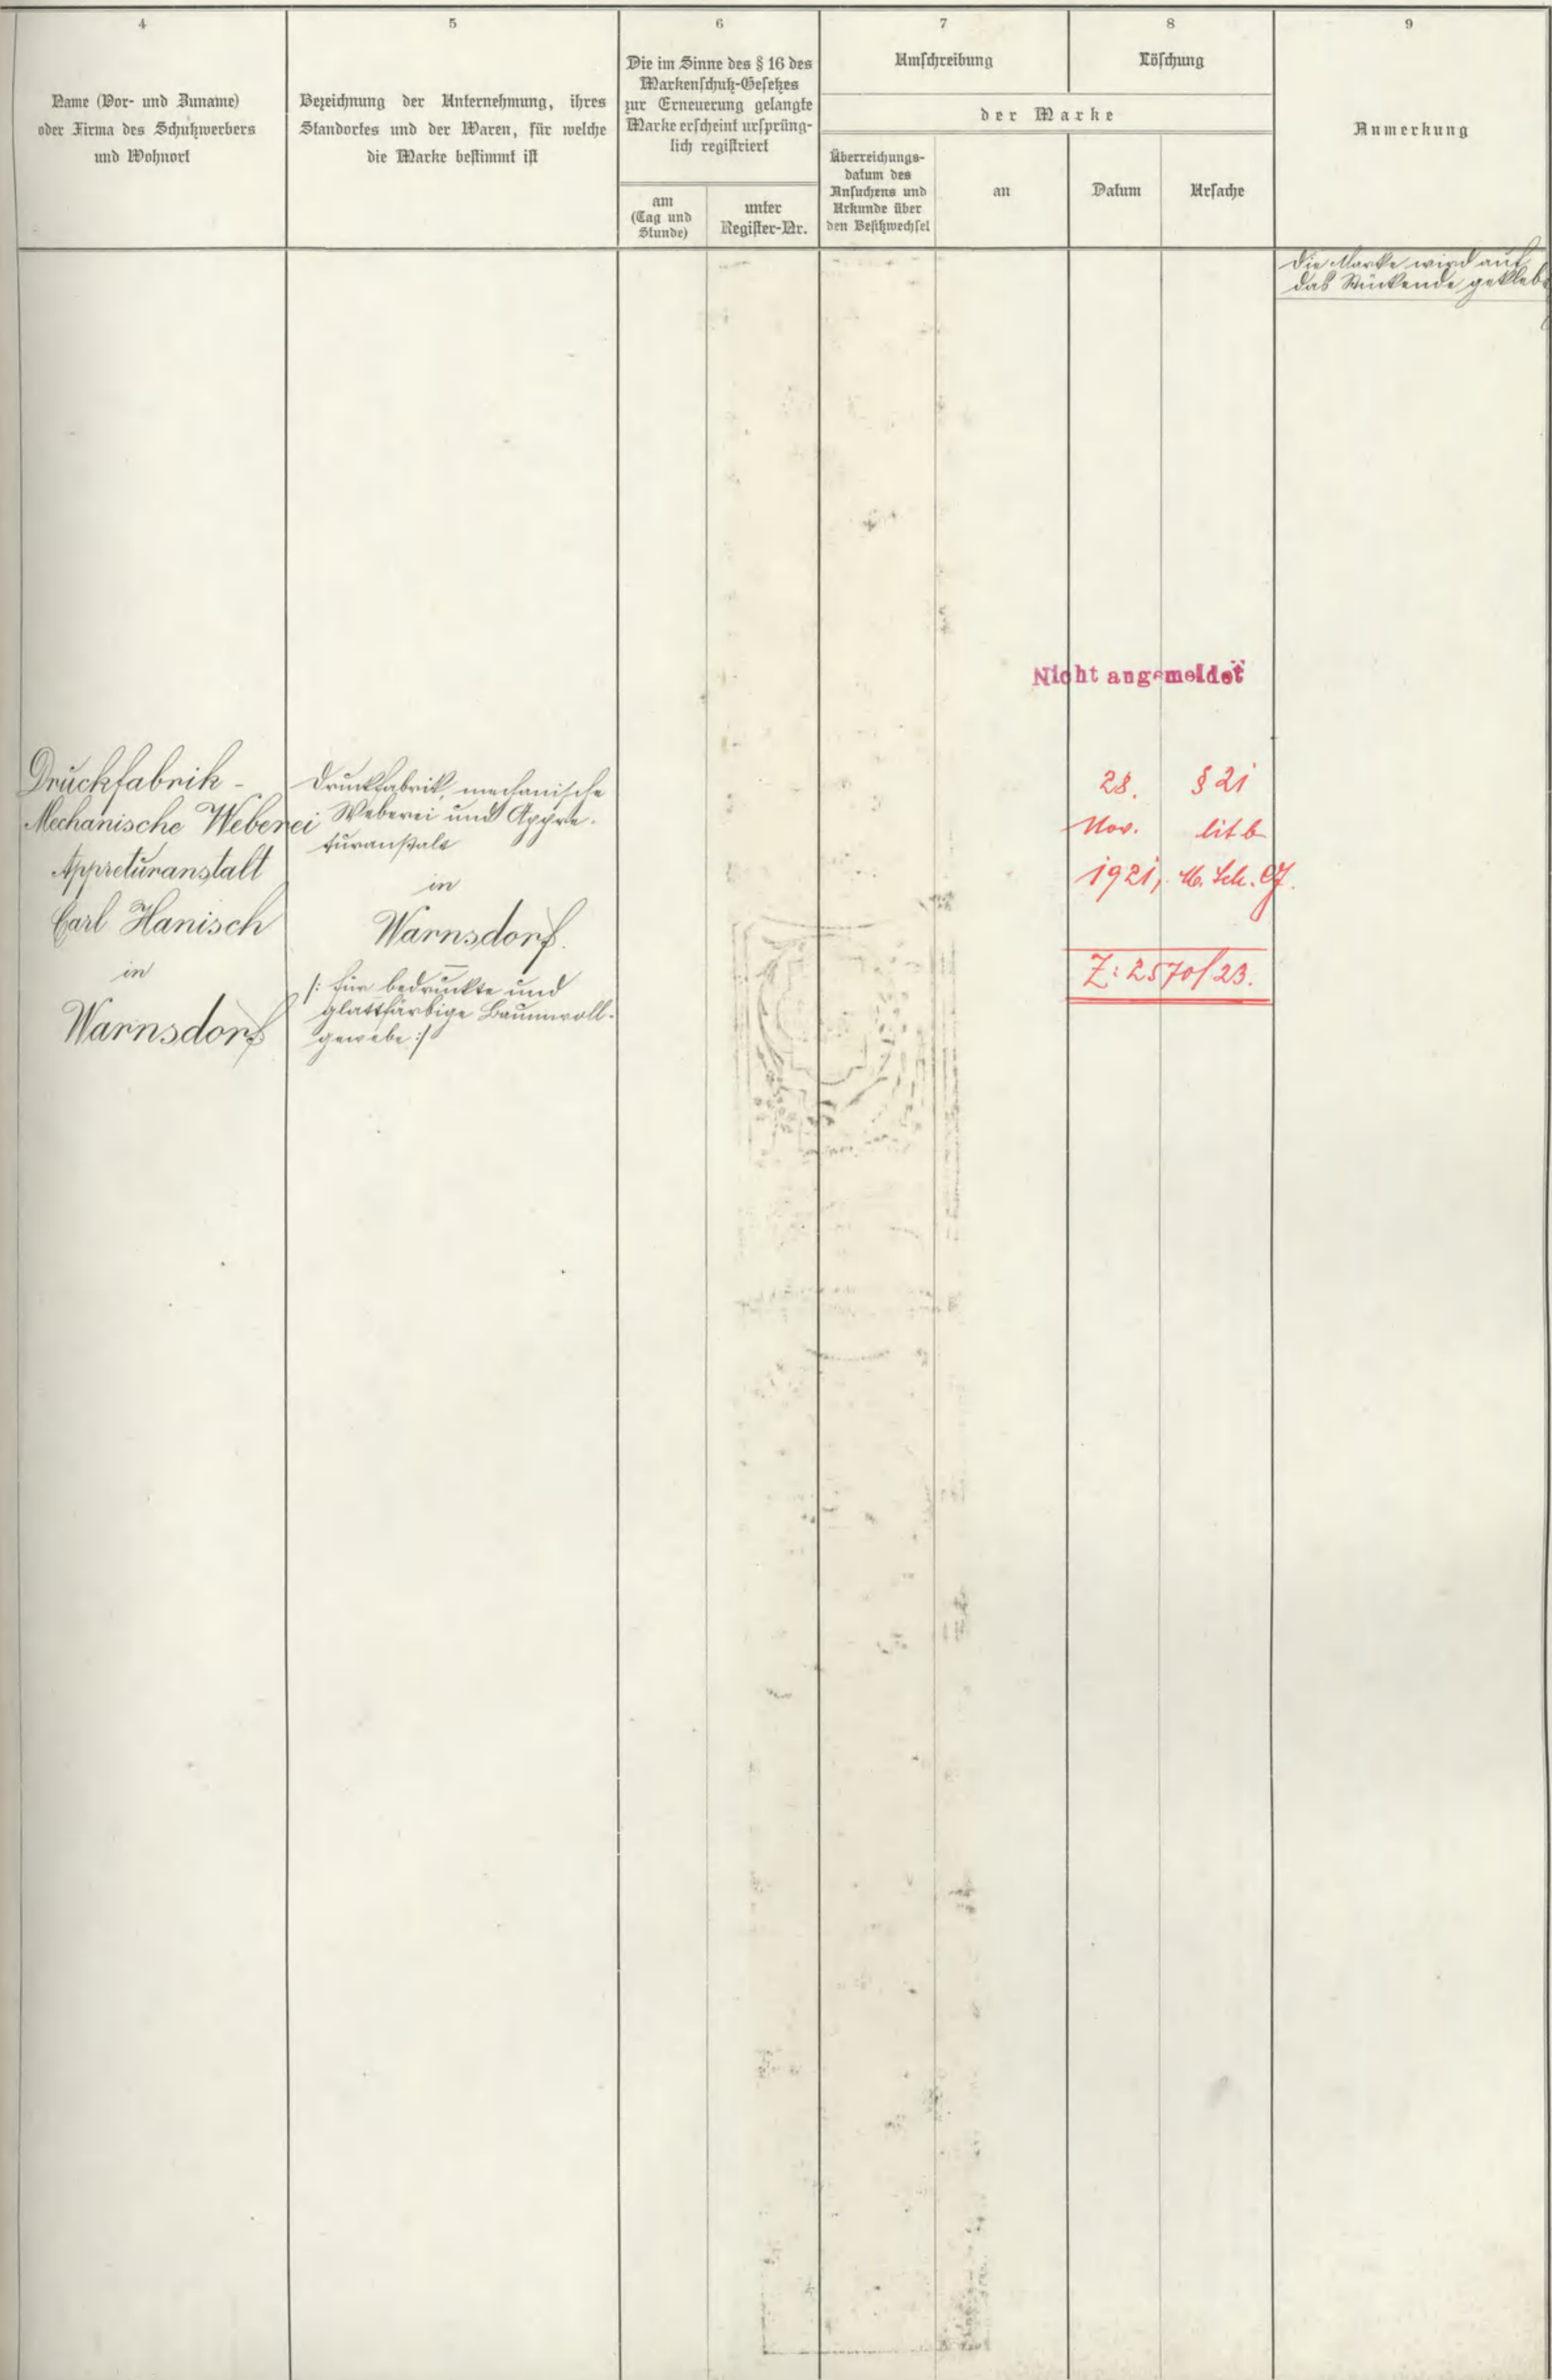 4
Name (Vor- und Zuname)
oder Firma des Schutzwerbers
und Wohnort
5
Bezeichnung der Unternehmung, ihres
Standortes und der Waren, für welche
die Marke bestimmt ist
6
Die im Sinne des § 16 des
Markenschutz-Gesetzes
zur Erneuerung gelangte
Marke erscheint ursprüng-
lich registriert
am
(Tag und
Stunde)
unter
Register-Nr.
7
Umschreibung
8
Löschung
der Marke
Überreichungs-
datum des
Ansuchens und
Urkunde über
den Besitzwechsel
an
Datum
Ursache
9
Anmerkung
Die Marke wird auf
das Stückende geklebt
Nicht angemeldet
Druckfabrik -
Mechanische Weberei
Appreturanstalt
Carl Hanisch
in
Warnsdorf
Druckfabrik, mechanische
Weberei und Appre-
turanstalt
in
Warnsdorf.
/: für bedruckte und
glattfärbige Baumwoll-
gewebe :/
28. § 21
Nov. lit b
1921, M. Sch. G.
Z: 2570/23.